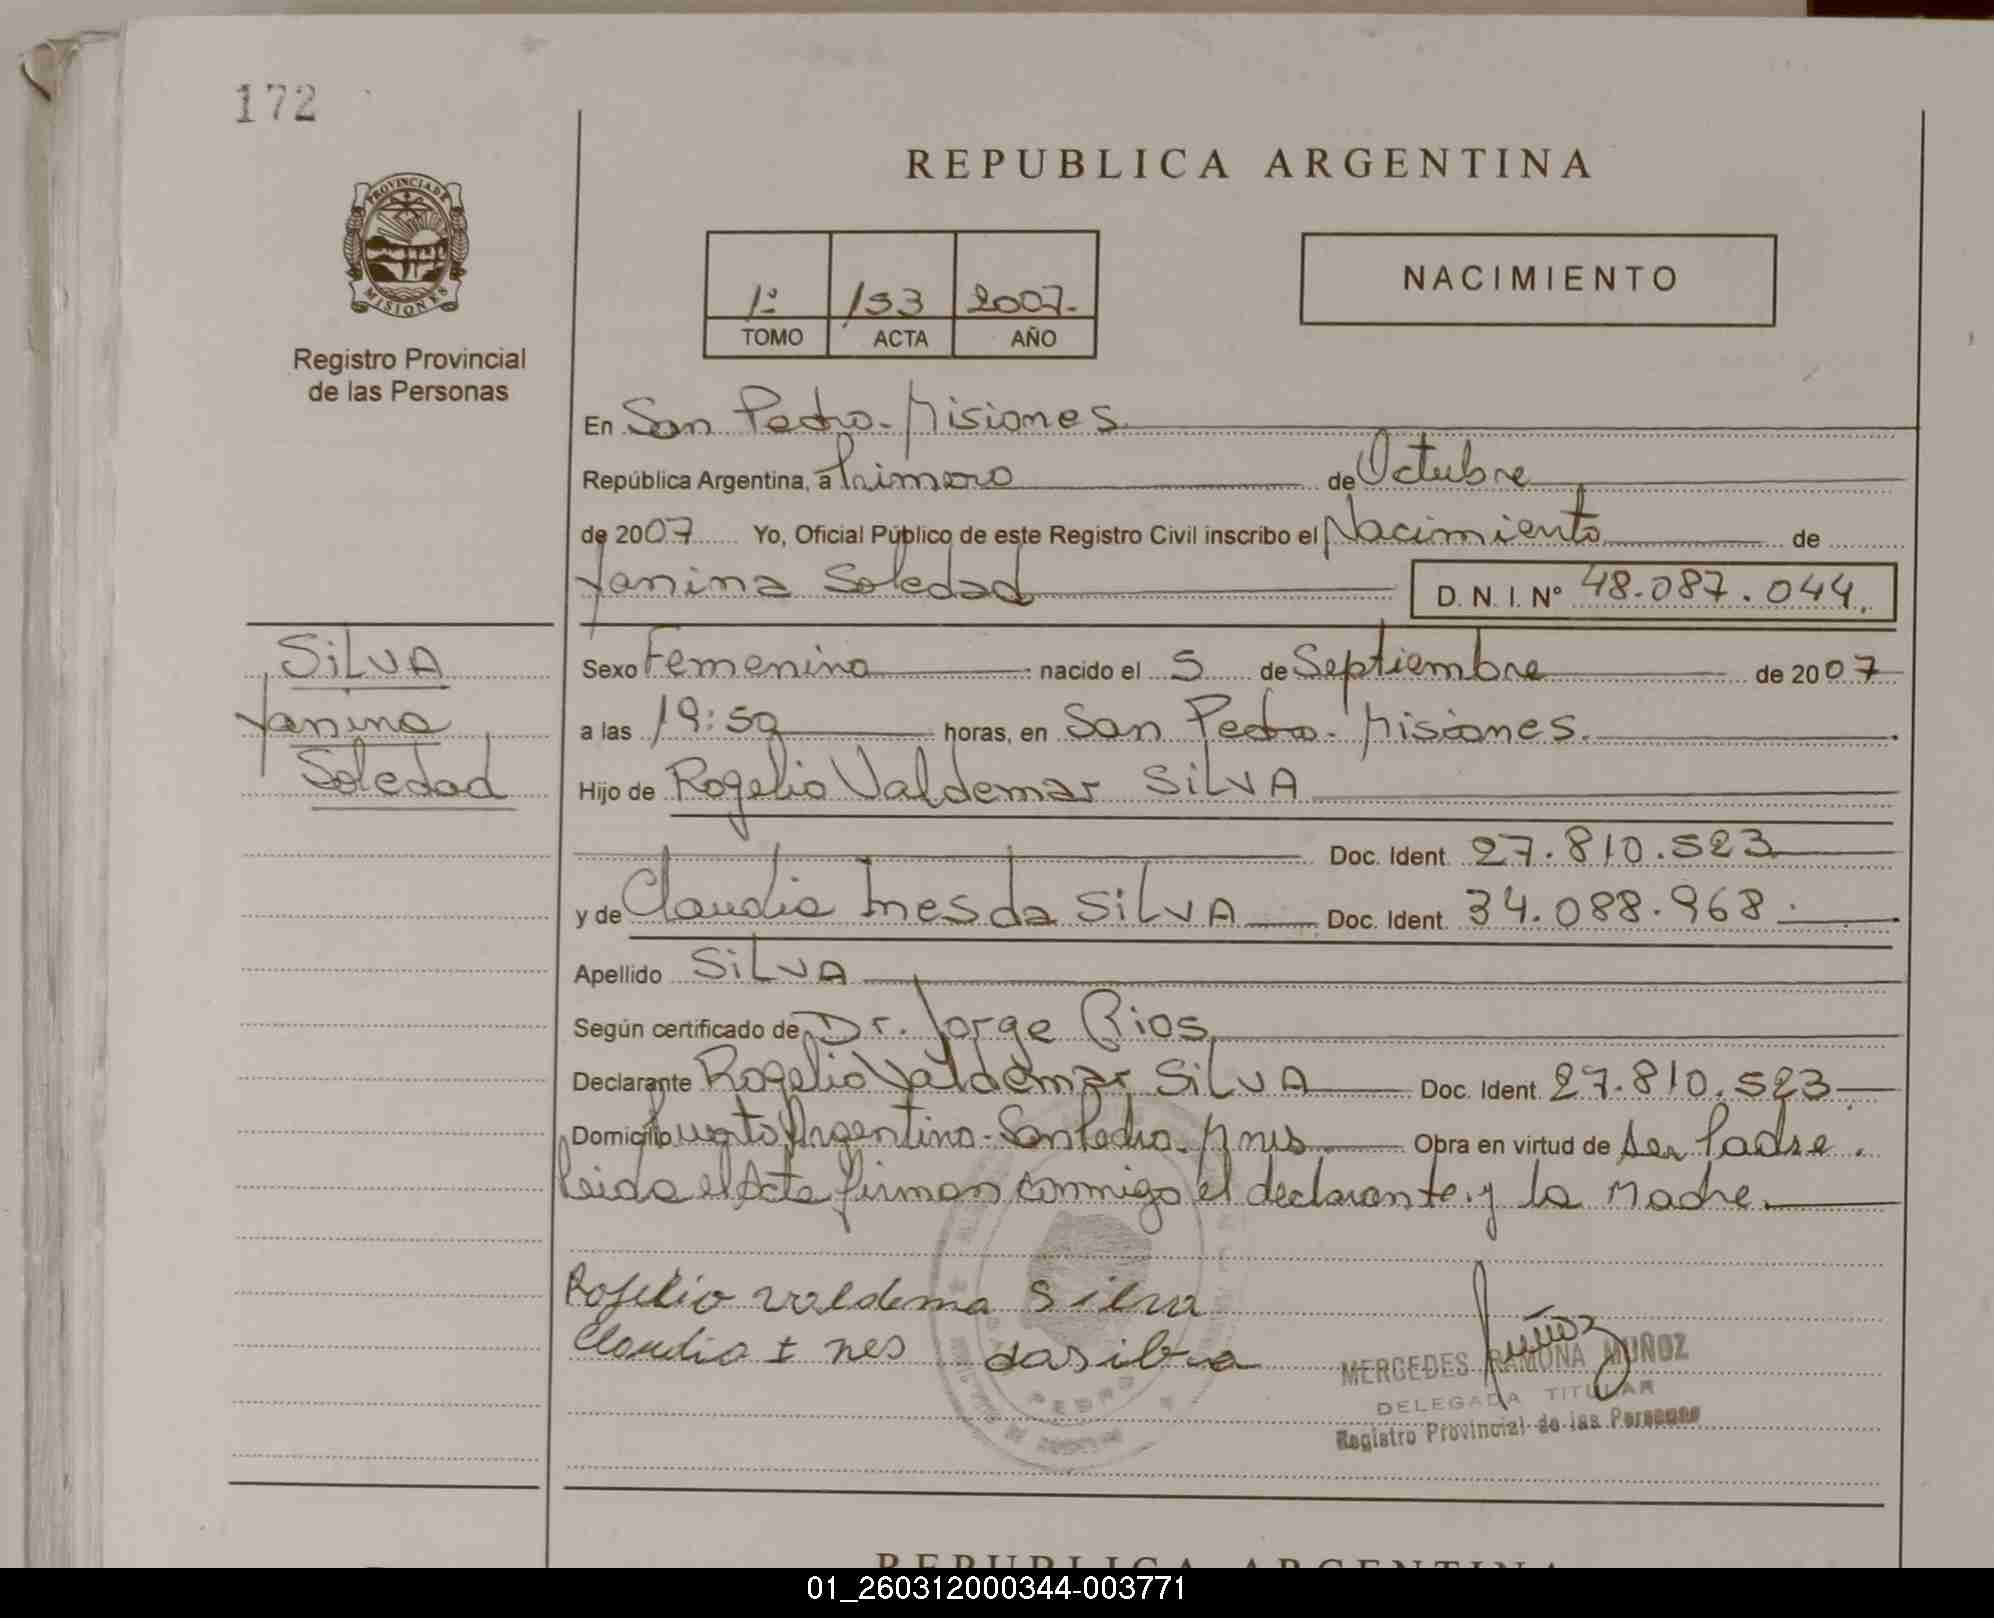 172
REPUBLICA ARGENTINA
PROVINCIA DE
MISIONES
Registro Provincial
de las Personas
1º 153 2007.-
TOMO ACTA AÑO
NACIMIENTO
En San Pedro - Misiones
República Argentina, a Primero de Octubre
de 2007 Yo, Oficial Público de este Registro Civil inscribo el Nacimiento de
Yanina Soledad D. N. I. Nº 48.087.044.
SILVA
Yanina
Soledad
Sexo Femenino nacido el 5 de Septiembre de 2007
a las 19:50 horas, en San Pedro - Misiones.
Hijo de Rogelio Valdemar SILVA
Doc. Ident. 27.810.523
y de Claudia Ines da SILVA Doc. Ident. 34.088.968.
Apellido SILVA
Según certificado de Dr. Jorge Rios
Declarante Rogelio Valdemar SILVA Doc. Ident. 27.810.523
Domicilio Puerto Argentino - San Pedro - Mnes. Obra en virtud de ser Padre.
Leida el Acta firman conmigo el declarante y la Madre.
Rogelio valdema Silva
Claudia I nes dasilva
Muñoz
MERCEDES RAMONA MUÑOZ
DELEGADA TITULAR
Registro Provincial de las Personas
PEDRO
REPUBLICA ARGENTINA
01_260312000344-003771